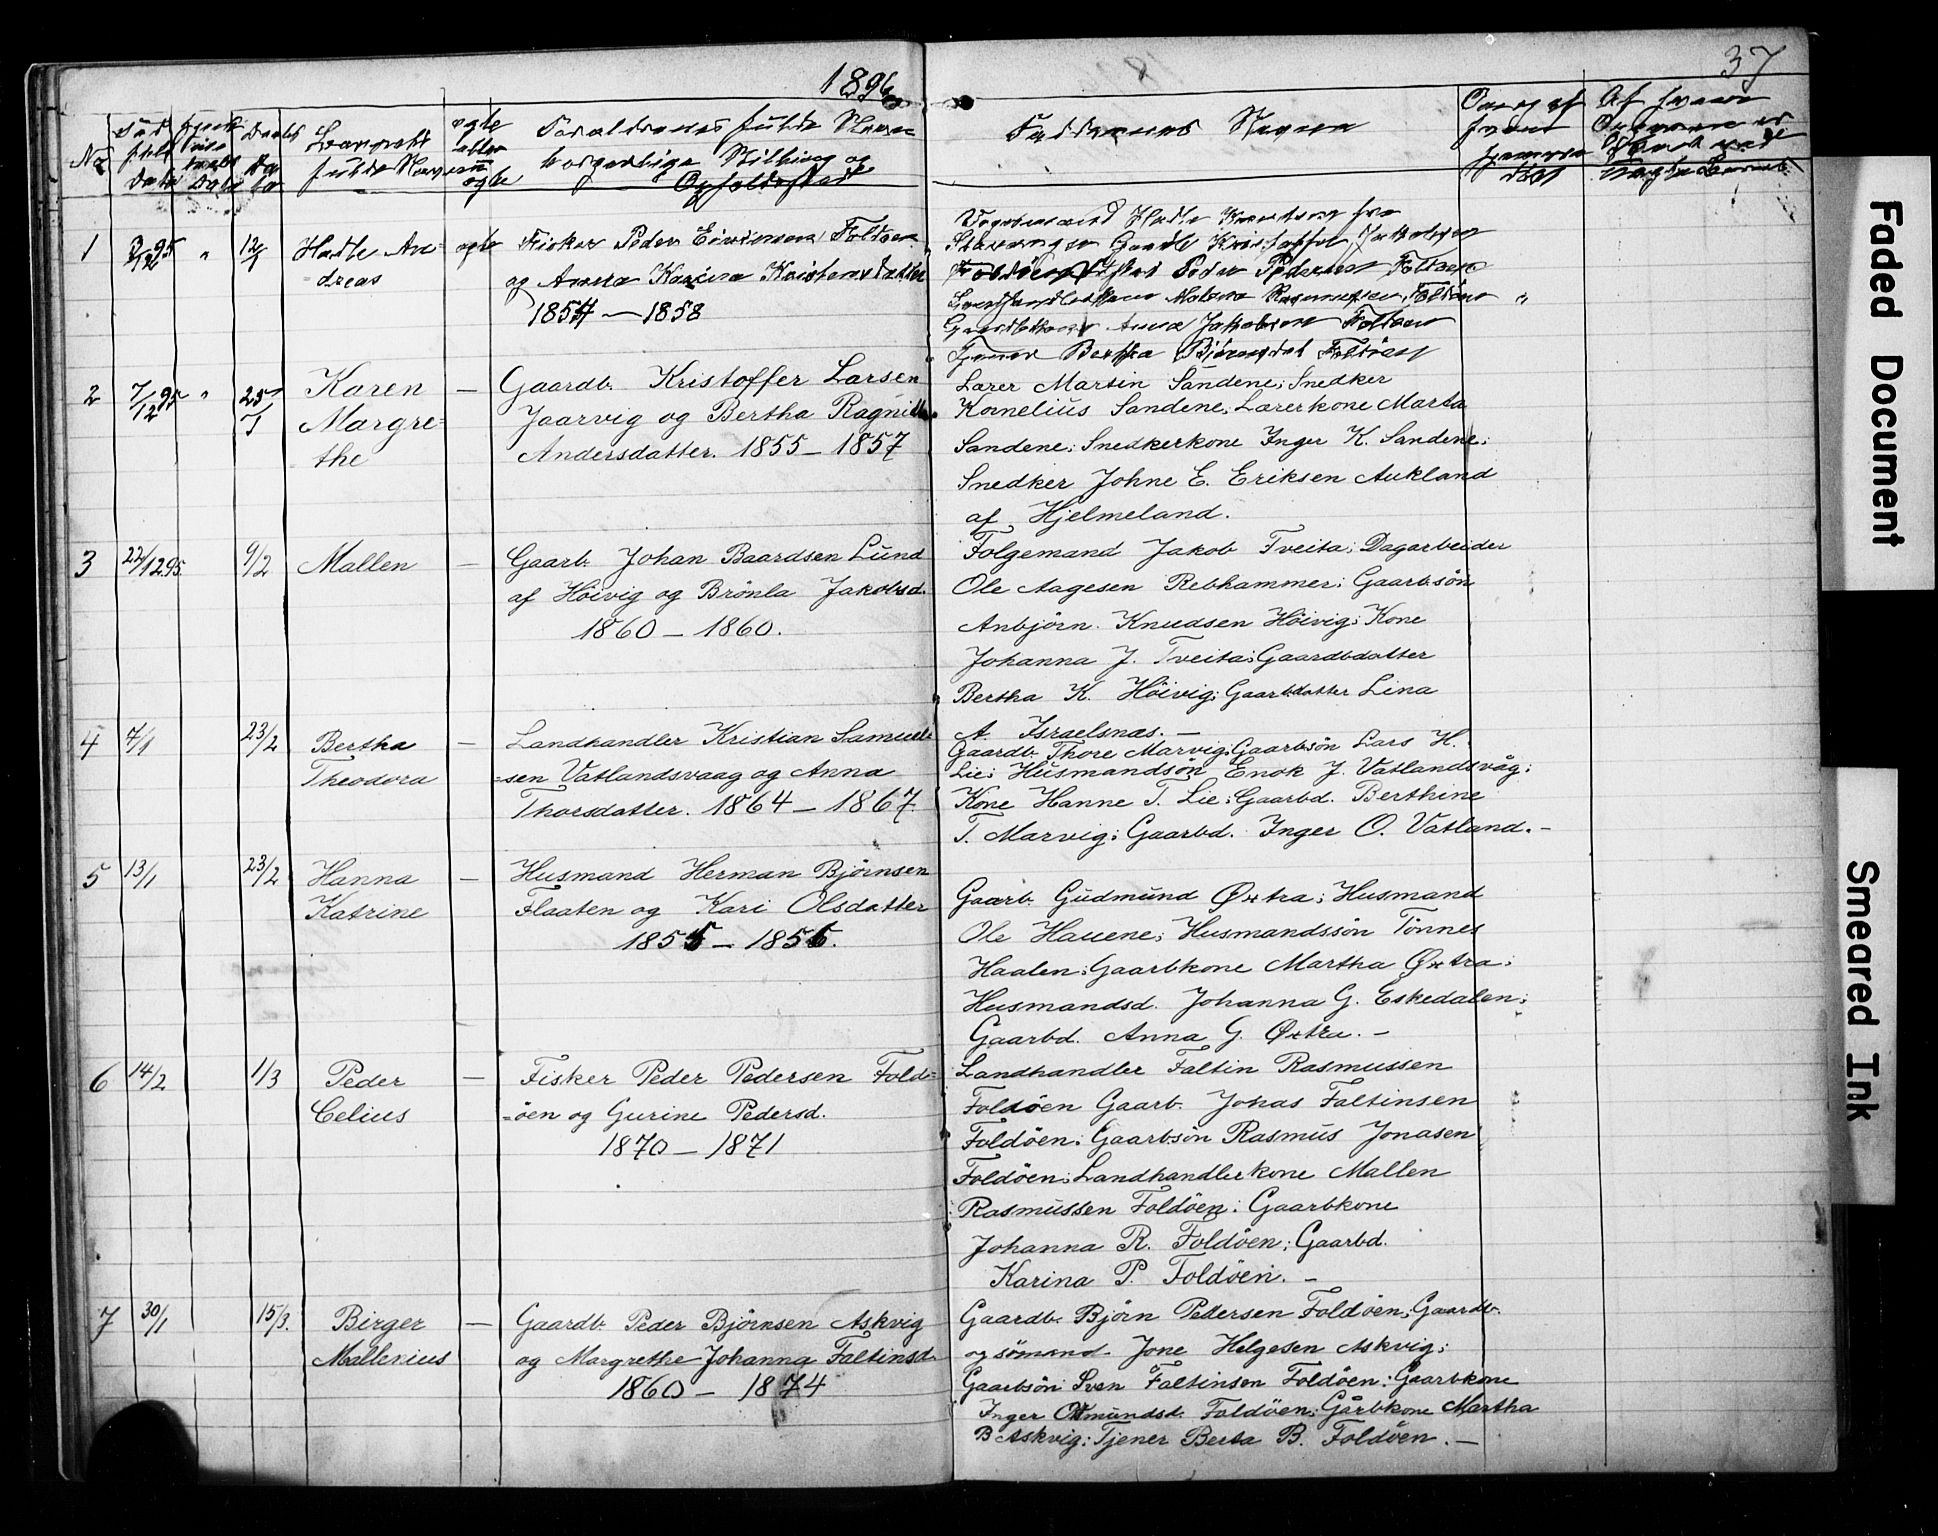 1896
37
No
Fød
sels
Dato
Daabs
Da
to
Barnets
fulde Navn
ægte
eller
uægte
Forældrenes fulde Navn
borgerlige Stilling og
Opholdssted
Faddernes Navne
1 3/12 95 " 12/1 Hadle An= ægte Fisker Peder Eivindsen Foldøen
dreas og Anna Karina Kristensdatter
1854 — 1858
Stavanger Gaardb. Kristoffer Jakobsen
Foldøen Peder Pedersen Foldøen
Malena Rasmussen, Foldöen "
Anna Jakobsen Foldøen
Bertha Björnsdat Foldöen
2 7/12 95 " 25/1 Karen — Gaardb. Kristoffer Larsen
Margre=
the
Jaarvig og Bertha Ragnilla
Andersdatter. 1855 — 1857
Lærer Martin Sandene; Snedker
Kornelius Sandene; Lærerkone Marta
Sandene; Snedkerkone Inger K. Sandene;
Snedker Johne E. Eriksen Aukland
af Hjelmeland.
3 22/12 95 9/2 Mallen — Gaarb. Johan Baardsen Lund
af Höivig og Brönla Jakobsd.
1860 — 1860.
Folgemand Jakob Tveita; Dagarbeider
Ole Aagesen Rebhammer; Gaarbsön
Anbjörn Knudsen Höivig; Kone
Johanna J. Tveita; Gaardbdatter
Bertha K. Höivig; Gaarbdatter Lina
A. Israelsnæs. —
4 7/1 23/2 Bertha — Landhandler Kristian Samuel=
Theodora =sen Vatlandsvaag og Anna
Thorsdatter. 1864 — 1867.
Gaardb. Thore Marvig; Gaarbsön Lars H.
Lie; Husmandsön Enok J. Vatlandsvåg;
Kone Hanne T. Lie; Gaarbd. Berthine
T. Marvig; Gaarbd. Inger O. Vatland. —
5 13/1 23/2 Hanna — Husmand Herman Bjørnsen
Katrine Flaaten og Kari Olsdatter
1855 — 1855.
Gaarb. Gudmund Øxtra; Husmand
Ole Hauene; Husmandssön Tönnes
Haalen; Gaarbkone Martha Øxtra;
Husmandsd. Johanna G. Eskedalen;
Gaarbd. Anna G. Øxtra. —
6 14/2 1/3 Peder — Fisker Peder Pedersen Fold=
Celius =öen og Gurine Pedersd.
1870 — 1871
Landhandler Faltin Rasmussen
Foldöen Gaarb. Johas Faltinsen
Foldöen; Gaarbsön Rasmus Jonasen
Foldöen; Landhandlerkone Mallen
Rasmussen Foldöen; Gaarbkone
Johanna R. Foldöen; Gaarbd.
Karina P. Foldöen. —
7 30/1 15/3. Birger — Gaardb. Peder Björnsen Askvig
Mallenius og Margrethe Johanna Faltinsd.
1860 — 1874
Gaardb. Bjørn Pedersen Foldöen; Gaardb.
og sömand Jone Helgesen Askvig;
Gaarbsön Sven Faltinsen Foldöen; Gaarbkone
Inger Osmundsd. Foldöen; Gårbkone Martha
B Askvig; Tjener Berta B. Foldöen. —
Faded Document
Smeared Ink